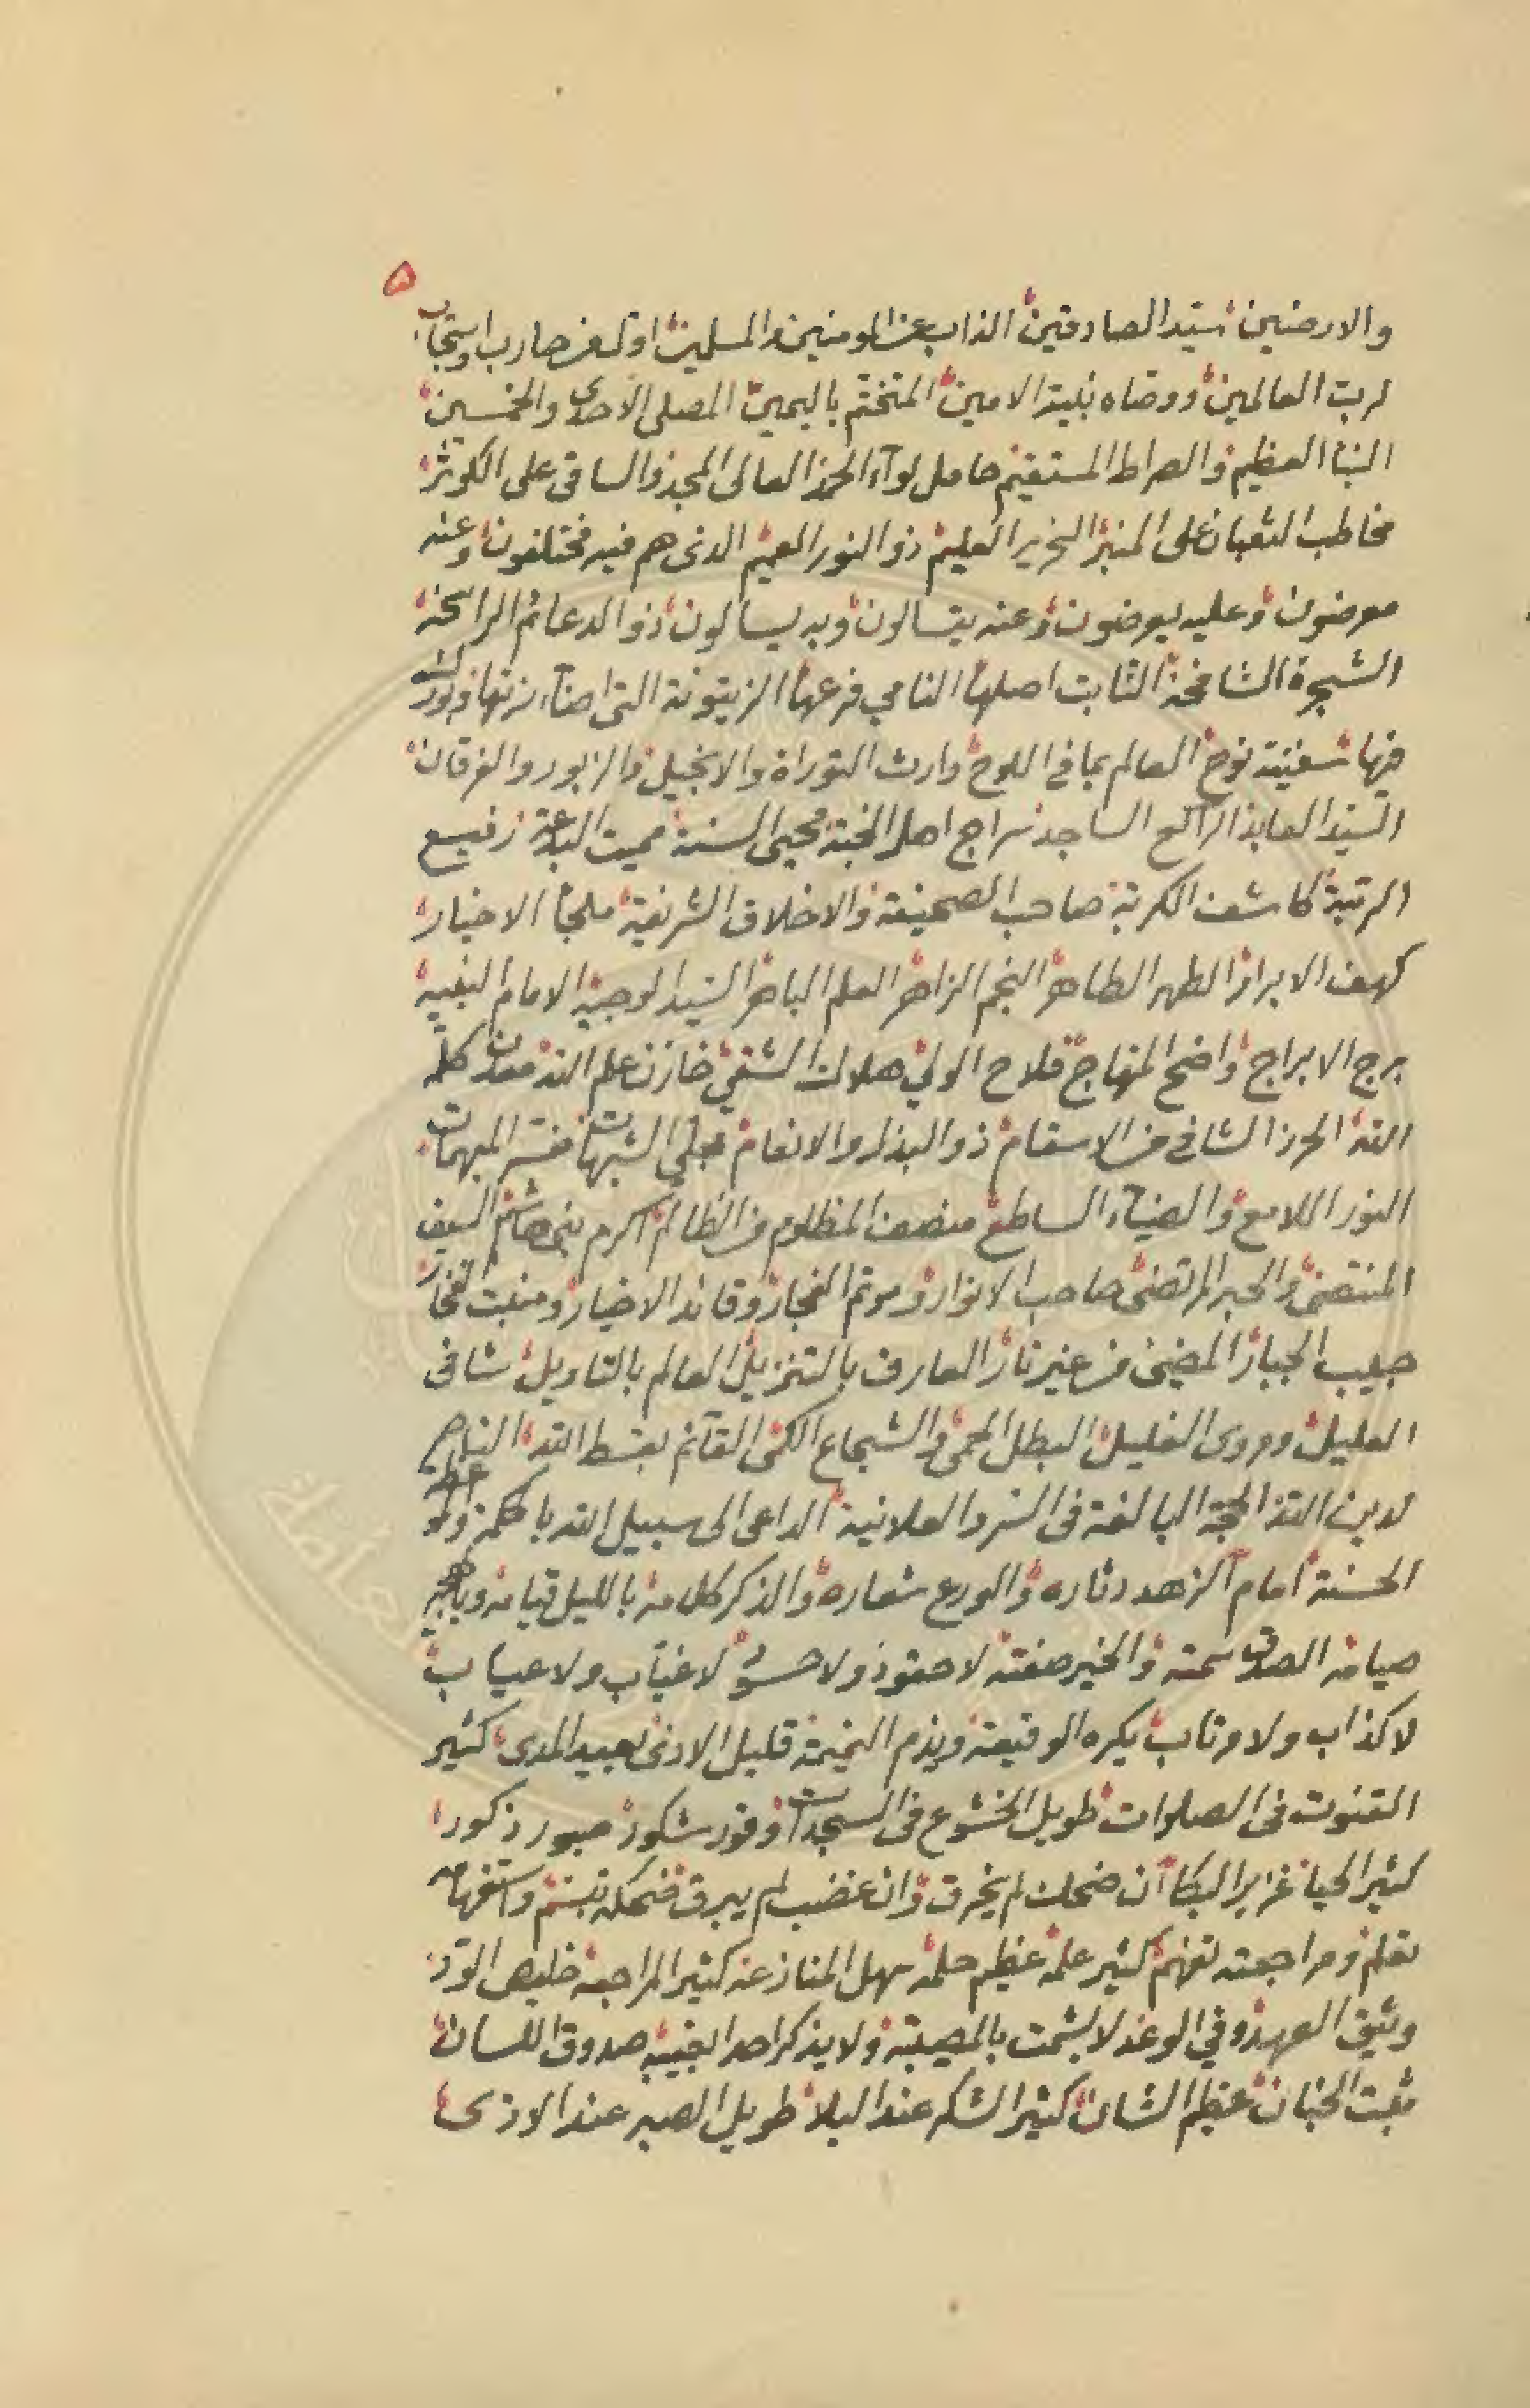 ٥
والارضين سيد الصادقين الذاب عن المومنين والمسلمين اول من حارب واستجاب
لرب العالمين ووصاه نبيه الامين المتختم باليمين المصلي الاحدى والخمسين
النبا العظيم والصراط المستقيم حامل لواء الحمد العالى المجد والساقى على الكوثر
مخاطب الثعبان على المنبر النحرير العليم ذو النور العميم الذى هم فيه مختلفون وعنه
معرضون وعليه يعرضون وعنه يتسالون وبه يسالون ذو الدعائم الراسخه
الشجرة الشامخة الثابت اصلها النامي فرعها الزيتونة التى اضاء زيتها وبورك
فيها سفينة نوح العالم بما في اللوح وارث التوراة والانجيل والزبور والفرقان
السيد العابد الراكع الساجد سراج اهل الجنة محيى السنة مميت البدعة رفيع
الرتبة كاشف الكربة صاحب الصحيفة والاخلاق الشريفة ملجأ الاخيار
كهف الابرار الطهر الطاهر النجم الزاهر العلم الباهر السيد الوجيه الامام النبيه
برج الابراج واضح المنهاج فلاح الولي هلاك الشقي خازن علم الله معدن كلمة
الله الحرز الشافي من الاسقام ذو البذل والانعام مجلي الشبهات مفسر المبهمات
النور اللامع والضياء الساطع منصف المظلوم من الظالم اكرم بنى هاشم السيف
المنتضى والحبر المرتضى صاحب الانوار وموتم الفجار وقائد الاخيار ومنبت الفخار
حبيب الجبار المضيئ من غير نار العارف بالتنزيل العالم بالتاويل شافى
العليل ومروى الغليل البطل المحمى والشجاع الكمى القآئم بقسط الله الناصر
لدين الله الحجة البالغة فى السر والعلانية الداعى الى سبيل الله بالحكمة والموعظة
الحسنة امام الزهد دثاره والورع شعاره والذكر كلامه بالليل قيامه وبالنهار
صيامه الصدق سمته والخير صفته لا حقود ولا حسود لا غياب ولا عياب
لا كذاب ولا مرتاب يكره الوقيعة ويذم النميمة قليل الاذى بعيد المدى كثير
القنوت فى الصلوات طويل الخشوع فى السجدات وقور شكور صبور ذكور
كثير الحيا غزير البكا ان ضحك لم يخرق وان غضب لم يبرق ضحكه تبسم واستفهامه
تعلم ومراجعته تفهم كثير علمه عظيم حلمه سهل المنازعه كثير المراجعة خليص الود
وثيق العهد وفي الوعد لا يشمت بالمصيبة ولا يذكر احدا بغيبه صدوق اللسان
مثبت الجنان عظيم الشان كثير الشكر عند البلا طويل الصبر عند الاذى